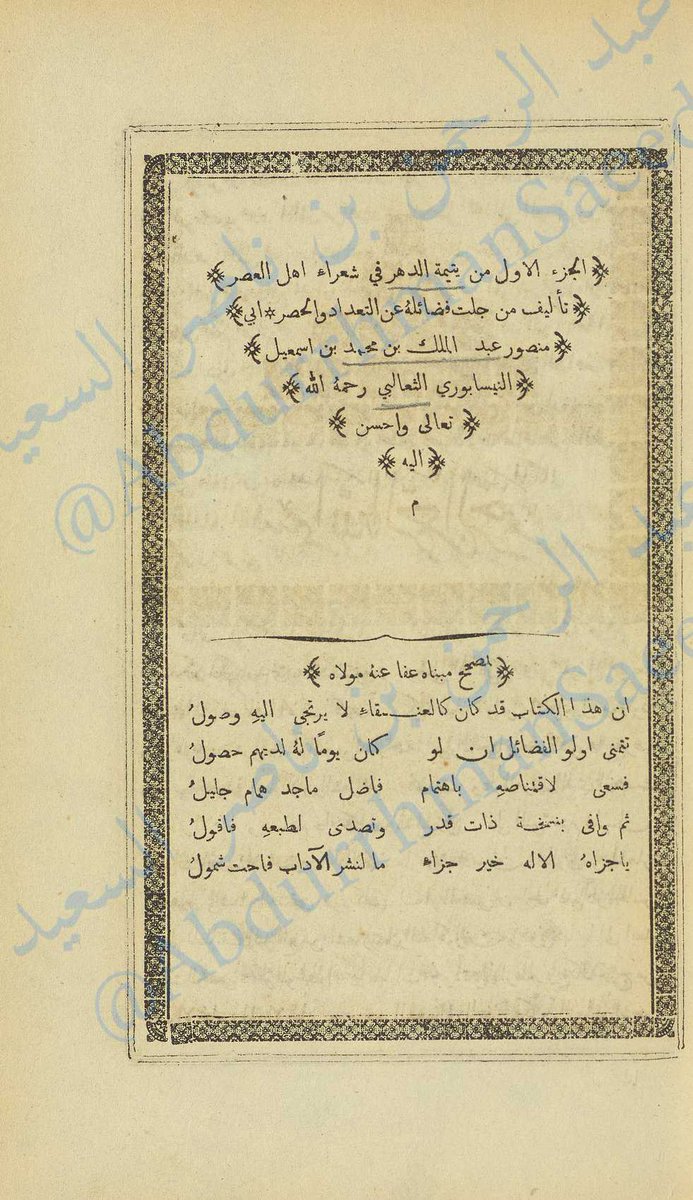 الجزء الاول من يتيمة الدهر في شعراء اهل العصر
تأليف من جلت فضائلهُ عن التعداد والحصر * ابي
منصور عبد الملك بن محمد بن اسمعيل
النيسابوري الثعالبي رحمهُ الله
تعالى واحسن
اليه
م
لمصحح مبناه عفا عنهُ مولاه
ان هذا الكتاب قد كان كالعنـقاء لا يرتجى اليهِ وصولُ
تتمنى اولو الفضائل ان لو كان يومًا لهُ لديهم حصولُ
فسعى لاقتناصهِ باهتمام فاضل ماجد همام جليلُ
ثم وافى بنسخة ذات قدر وتصدى لطبعهِ فاقولُ
ياجزاهُ الاله خير جزاء ما لنشر الآداب فاحت شمولُ
عبد الرحمن بن ناصر السعيد
@AbdurrhmanSaeed
عبد الرحمن بن ناصر السعيد
@AbdurrhmanSaeed